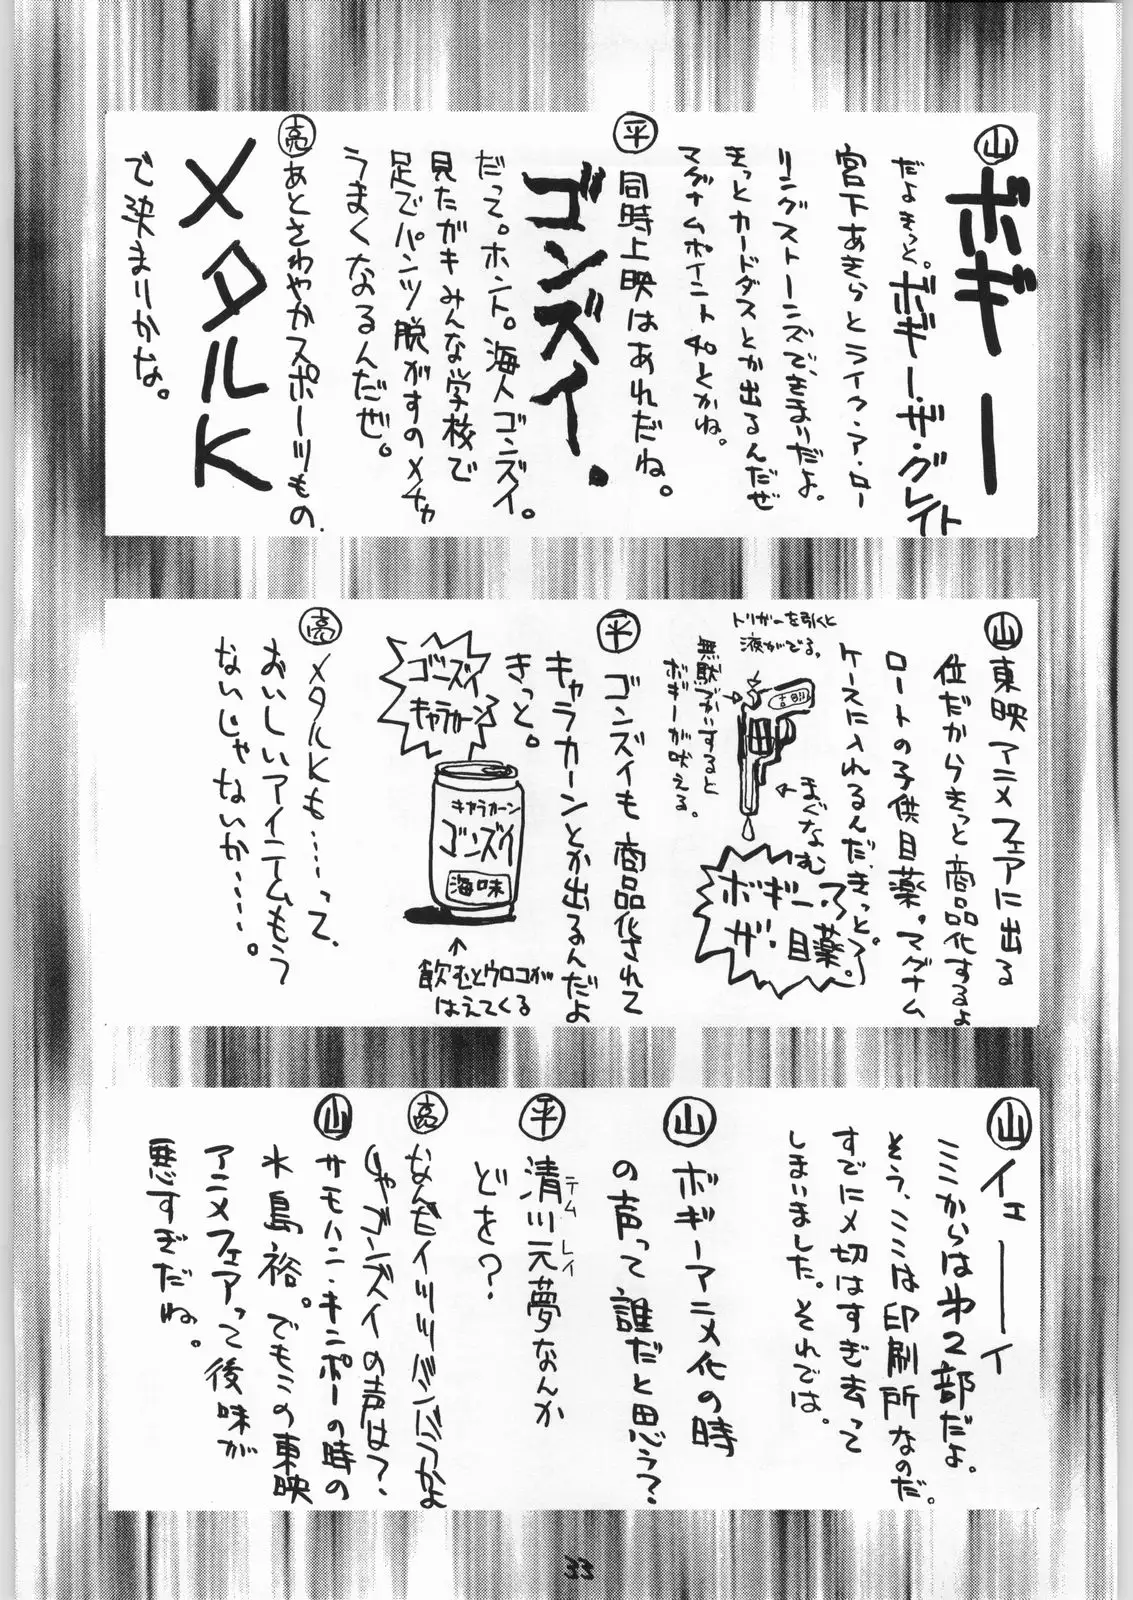 山
ボギー
だよきっと。ボギー・ザ・グレイト
宮下あきらとライク・ア・ロー
リングストーンズで、きまいだよ。
きっとカードダスとか出るんだぜ
マグナムポイント40とかね。
平 同時上映はあれだね。
ゴンズイ.
だって。ホント。海人ゴンズイ。
見たガキみんな学校で
足でパンツ脱がすのメチャ
うまくなるんだぜ。
亮 あとさわやかスポーツもの.
メタルK
で決まりかな。
山 東映アニメフェアに出る
位だからきっと商品化するよ
ロートの子供目薬。マグナム
ケースに入れるんだ、きっと。
トリガーを引くと
液がでる。
無駄づかいすると
ボギーが吠える。
まぐなむ
ボギー・ザ・目薬。
平 ゴンズイも商品化されて
キャラカーンとか出るんだよ
きっと。
ゴーンズイ
キャラカーン
キャラカーン
ゴーンズイ
海味
飲むとウロコが
はえてくる
亮 メタルKも……って、
おいしいアイテムもう
ないじゃないか……。
山 イェーーイ
ミミからは第2部だよ。
そう、ミミは印刷所なのだ。
すでに〆切はすぎ去って
しまいました。それでは。
山 ボギーアニメ化の時
の声って誰だと思う?
平 清川元夢なんか
テムレイ
どを?
亮
じゃゴンズイの声は?
山 サモハン・キンポーの時の
水島裕。でもミの東映
アニメフェアって後味が
悪すぎだね。
33